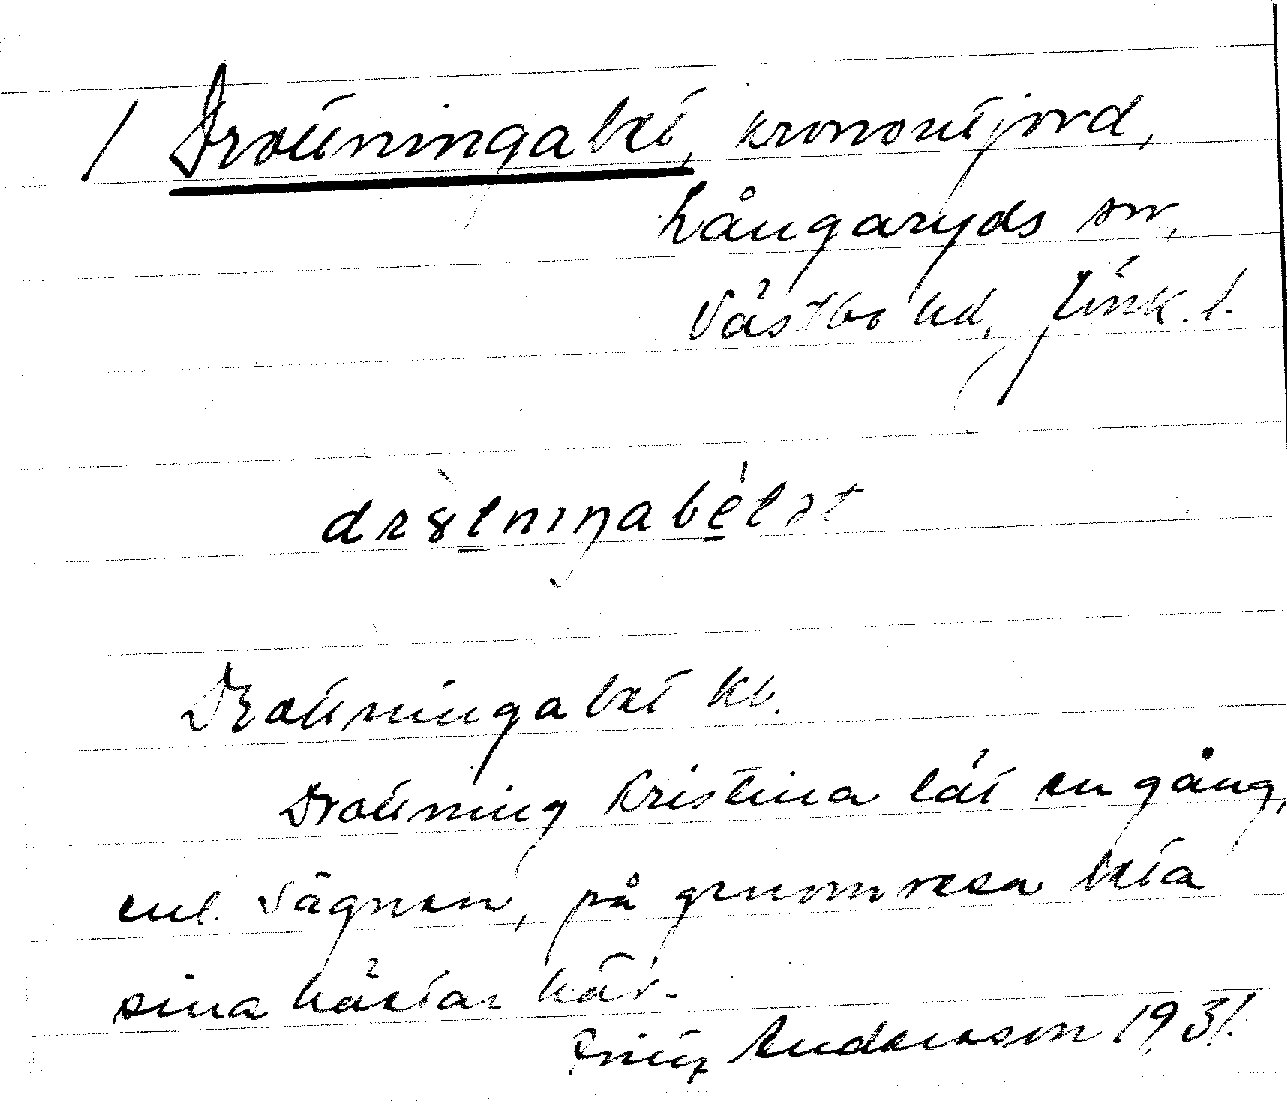 1 Drottningabet, kronoutjord,
Långaryds sn,
Västbo hd, Jönk. l.
Drottningabet kb.
Drottning Kristina lät en gång,
enl. sägnen, på genomresa beta
sina hästar här.
Andersson 1931.